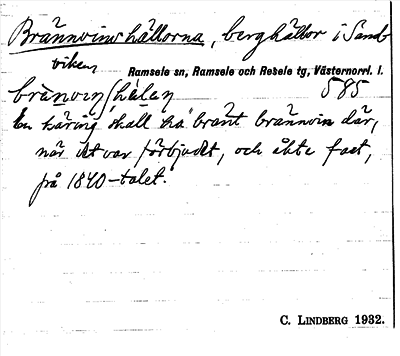 Brännvinshällorna, berghällor i Sand
viken,
Ramsele sn, Ramsele och Resele tg, Västernorrl. l.
brä̀nvin/hä́len 585
En käring skall ha bränt brännvin där,
när det var förbjudet, och åkte fast,
på 1840-talet.
C. LINDBERG 1932.